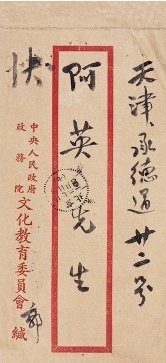 天津承德道廿二号
阿英先生
快
中央人民政府
政务院
文化教育委員會
缄
郭